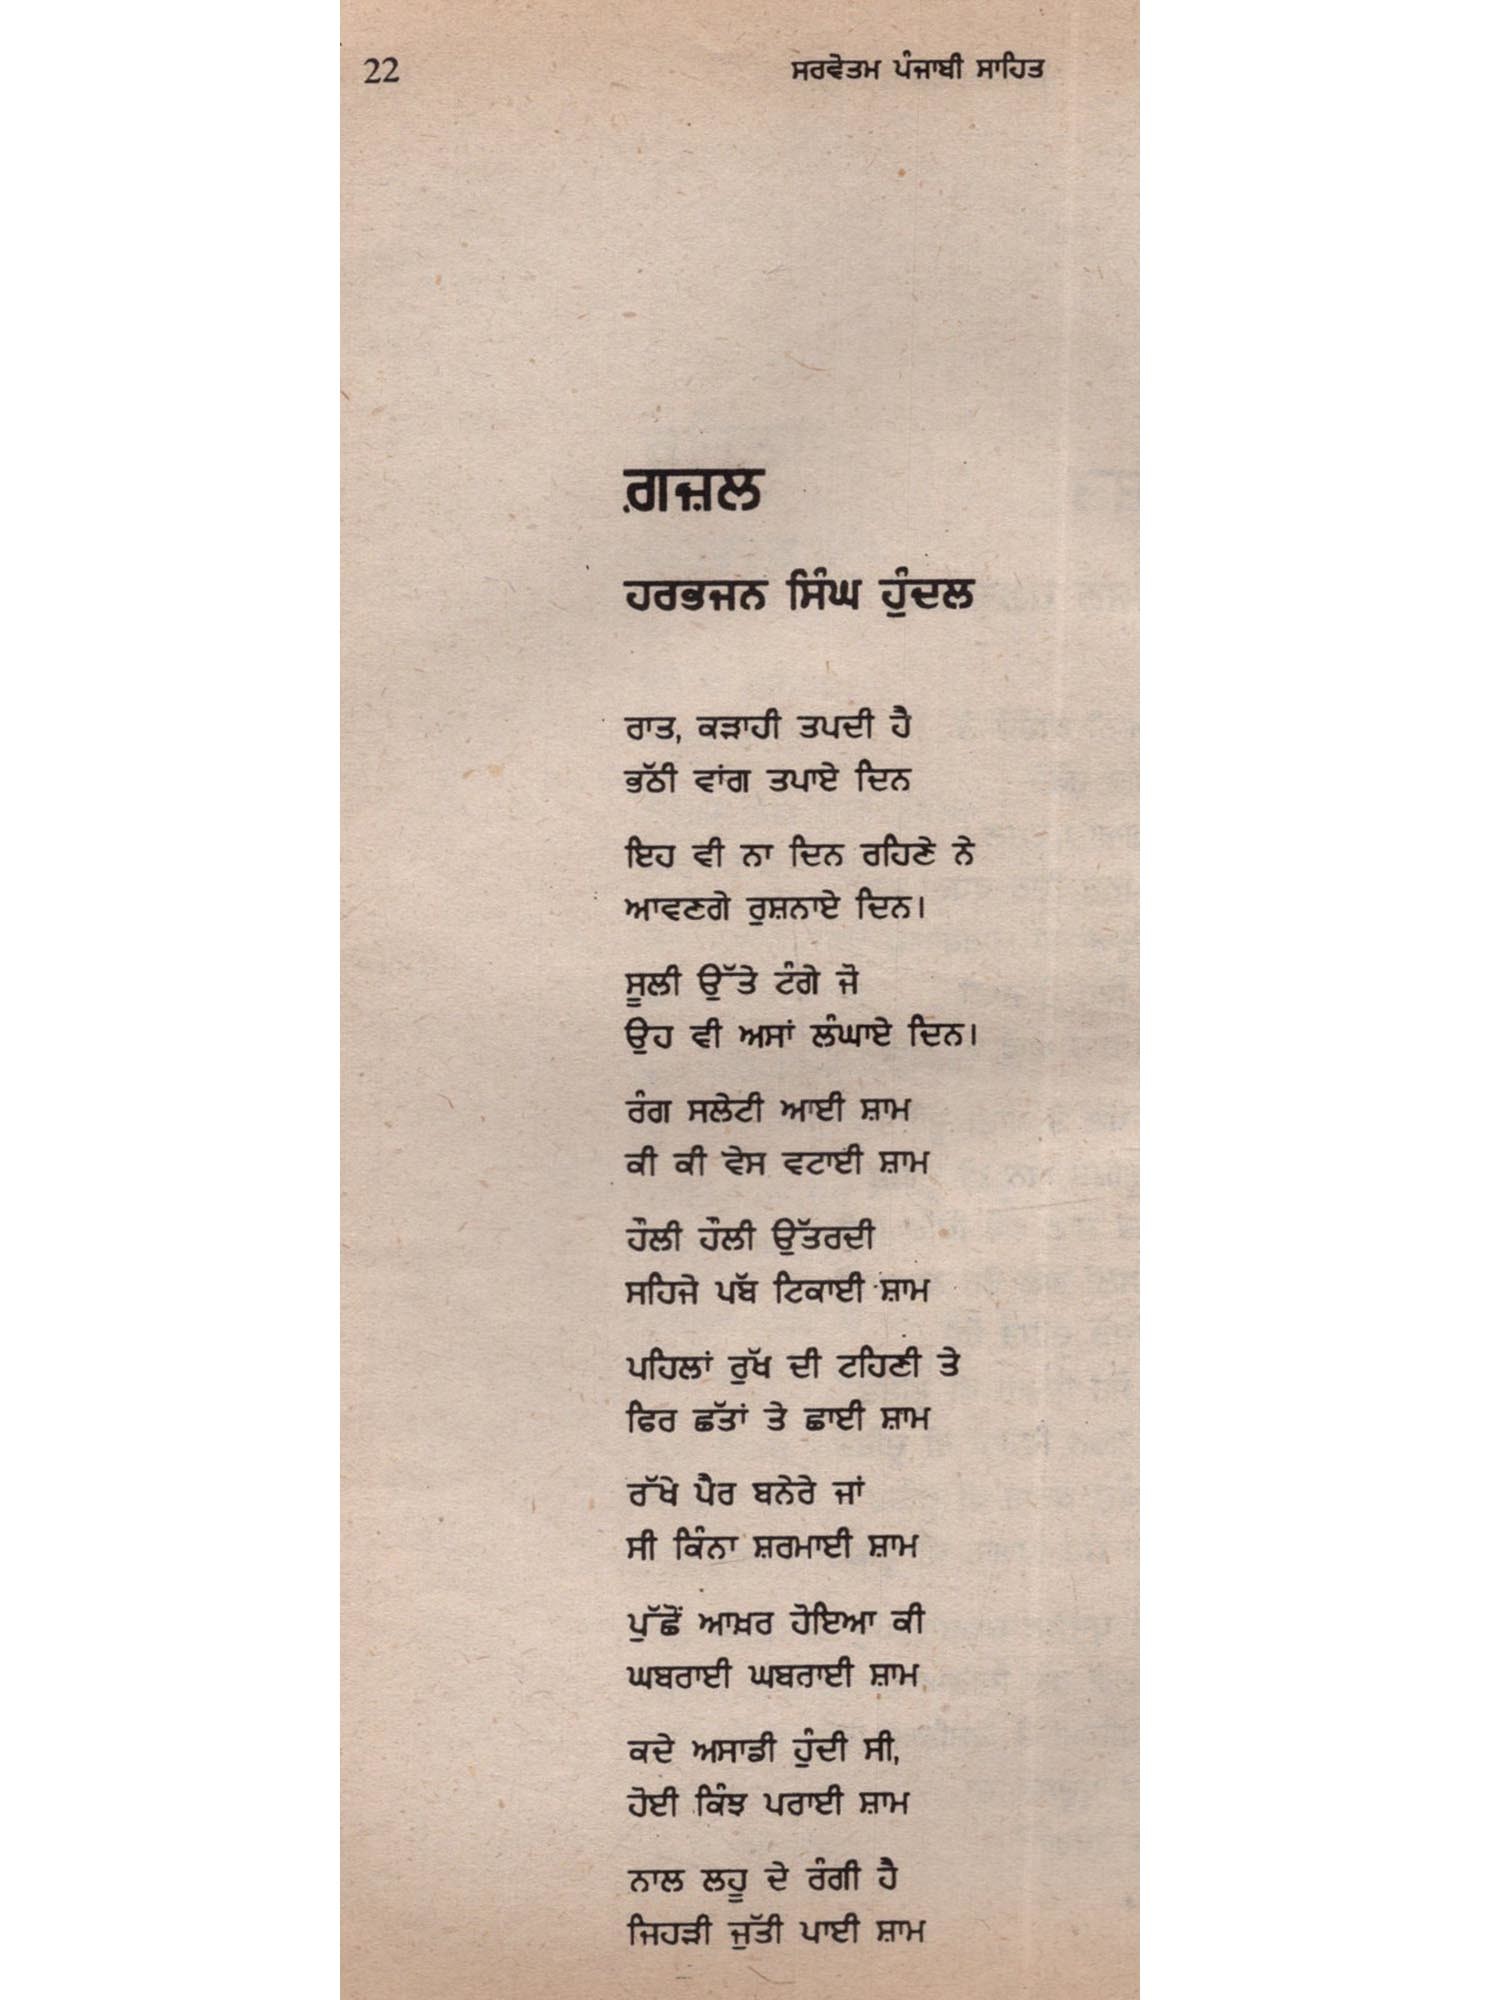 22
ਸਰਵੋਤਮ ਪੰਜਾਬੀ ਸਾਹਿਤ
ਗ਼ਜ਼ਲ
ਹਰਭਜਨ ਸਿੰਘ ਹੁੰਦਲ
ਰਾਤ, ਕੜਾਹੀ ਤਪਦੀ ਹੈ
ਭੱਠੀ ਵਾਂਗ ਤਪਾਏ ਦਿਨ
ਇਹ ਵੀ ਨਾ ਦਿਨ ਰਹਿਣੇ ਨੇ
ਆਵਣਗੇ ਰੁਸ਼ਨਾਏ ਦਿਨ।
ਸੂਲੀ ਉੱਤੇ ਟੰਗੇ ਜੋ
ਉਹ ਵੀ ਅਸਾਂ ਲੰਘਾਏ ਦਿਨ।
ਰੰਗ ਸਲੇਟੀ ਆਈ ਸ਼ਾਮ
ਕੀ ਕੀ ਵੇਸ ਵਟਾਈ ਸ਼ਾਮ
ਹੌਲੀ ਹੌਲੀ ਉੱਤਰਦੀ
ਸਹਿਜੇ ਪੱਬ ਟਿਕਾਈ ਸ਼ਾਮ
ਪਹਿਲਾਂ ਰੁੱਖ ਦੀ ਟਹਿਣੀ ਤੇ
ਫਿਰ ਛੱਤਾਂ ਤੇ ਛਾਈ ਸ਼ਾਮ
ਰੱਖੇ ਪੈਰ ਬਨੇਰੇ ਜਾਂ
ਸੀ ਕਿੰਨਾ ਸ਼ਰਮਾਈ ਸ਼ਾਮ
ਪੁੱਛੋਂ ਆਖ਼ਰ ਹੋਇਆ ਕੀ
ਘਬਰਾਈ ਘਬਰਾਈ ਸ਼ਾਮ
ਕਦੇ ਅਸਾਡੀ ਹੁੰਦੀ ਸੀ,
ਹੋਈ ਕਿੰਝ ਪਰਾਈ ਸ਼ਾਮ
ਨਾਲ ਲਹੂ ਦੇ ਰੰਗੀ ਹੈ
ਜਿਹੜੀ ਜੁੱਤੀ ਪਾਈ ਸ਼ਾਮ